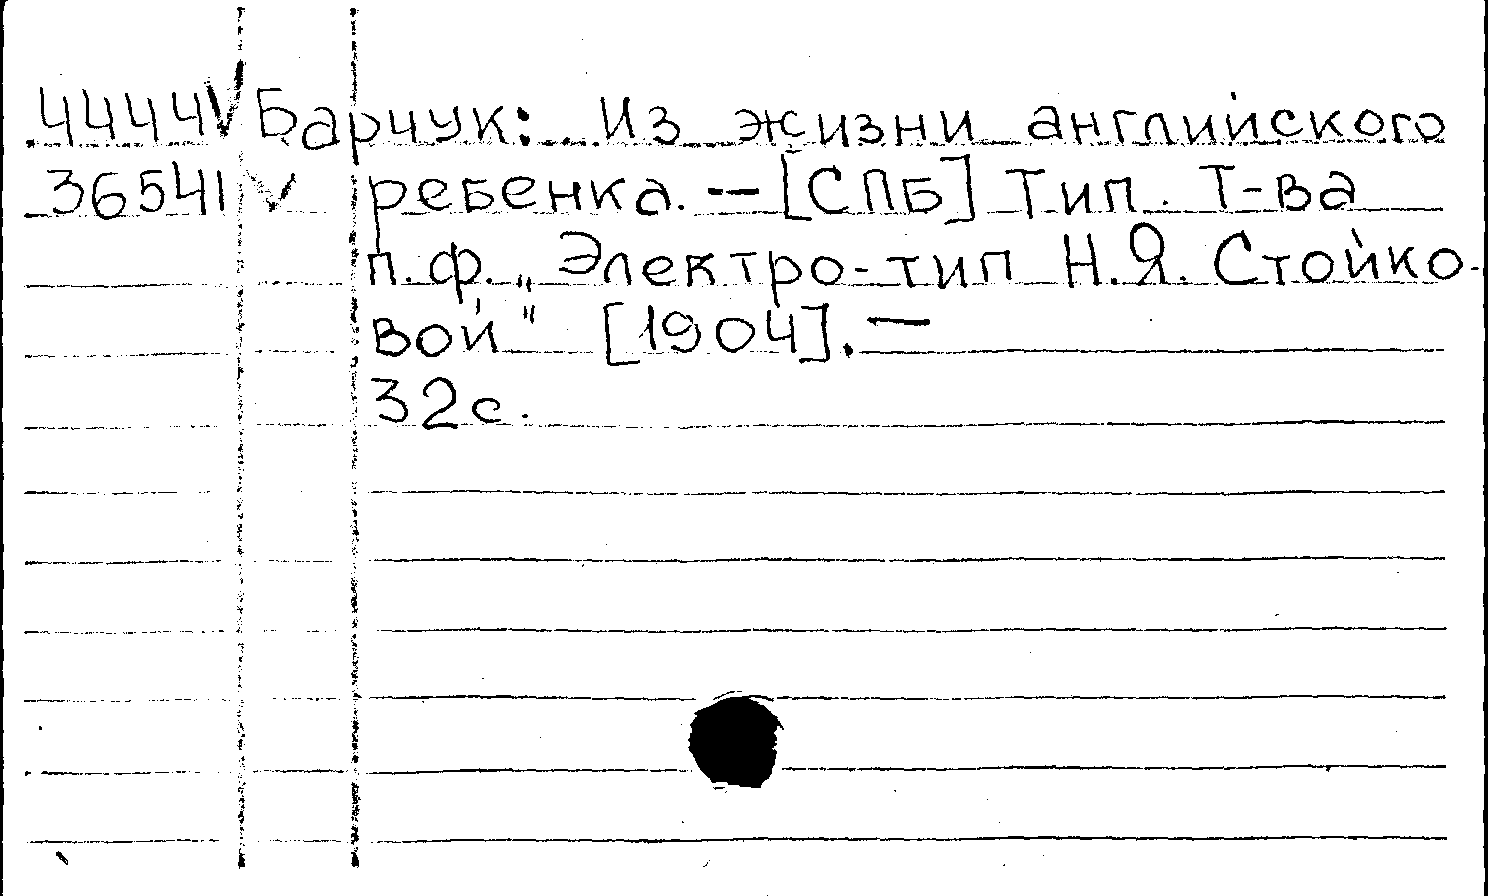 4444 V Барчук: Из жизни английского
36541 V ребенка. — [СПБ] Тип. Т-ва
п.ф. „Электро-тип Н.Я. Стойко-
вой" [1904]. —
32 с.